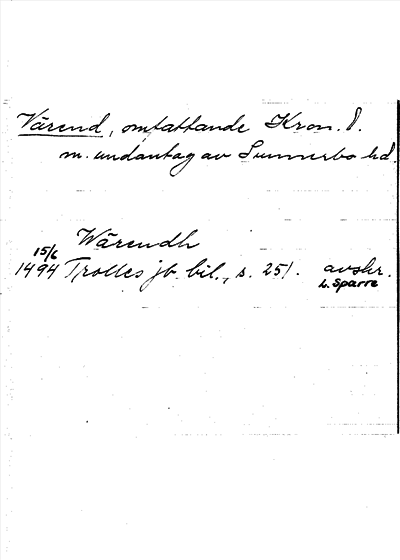 Värend, omfattande Kron. l.
m. undantag av Sunnerbo hd.
Wärendh
15/6
1494 Trolles jb. bil., s. 251. avskr.
L. Sparre